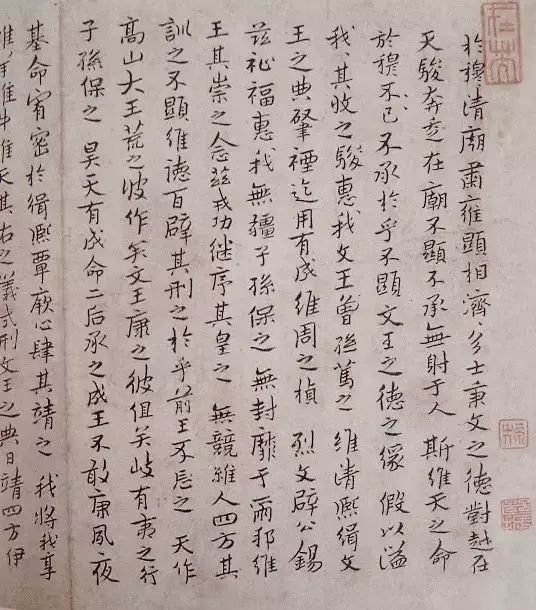 於穆清廟肅雍顯相濟、多士秉文之德對越在
天駿奔走在廟不顯不承無射于人 斯維天之命
於穆不已不承於乎不顯文王之德之緣 假以溢
我、其收之駿惠我文王曾孫篤之 維清熙緝文
王之典肇禋迄用有成維周之楨 烈文辟公錫
茲祉福惠我無疆子孫保之 無封靡于爾邦維
王其崇之念茲戎功继序其皇之 無競維人四方其
訓之不顯維德百辟其刑之於乎前王不忘之 天作
高山大王荒之彼作矣文王康之彼徂矣岐有夷之行
子孫保之 昊天有成命二后承之成王不敢康夙夜
基命宥密於緝熙覃厥心肆其靖之 我將我享
維羊維牛維天其右之義式刑文王之典日靖四方伊